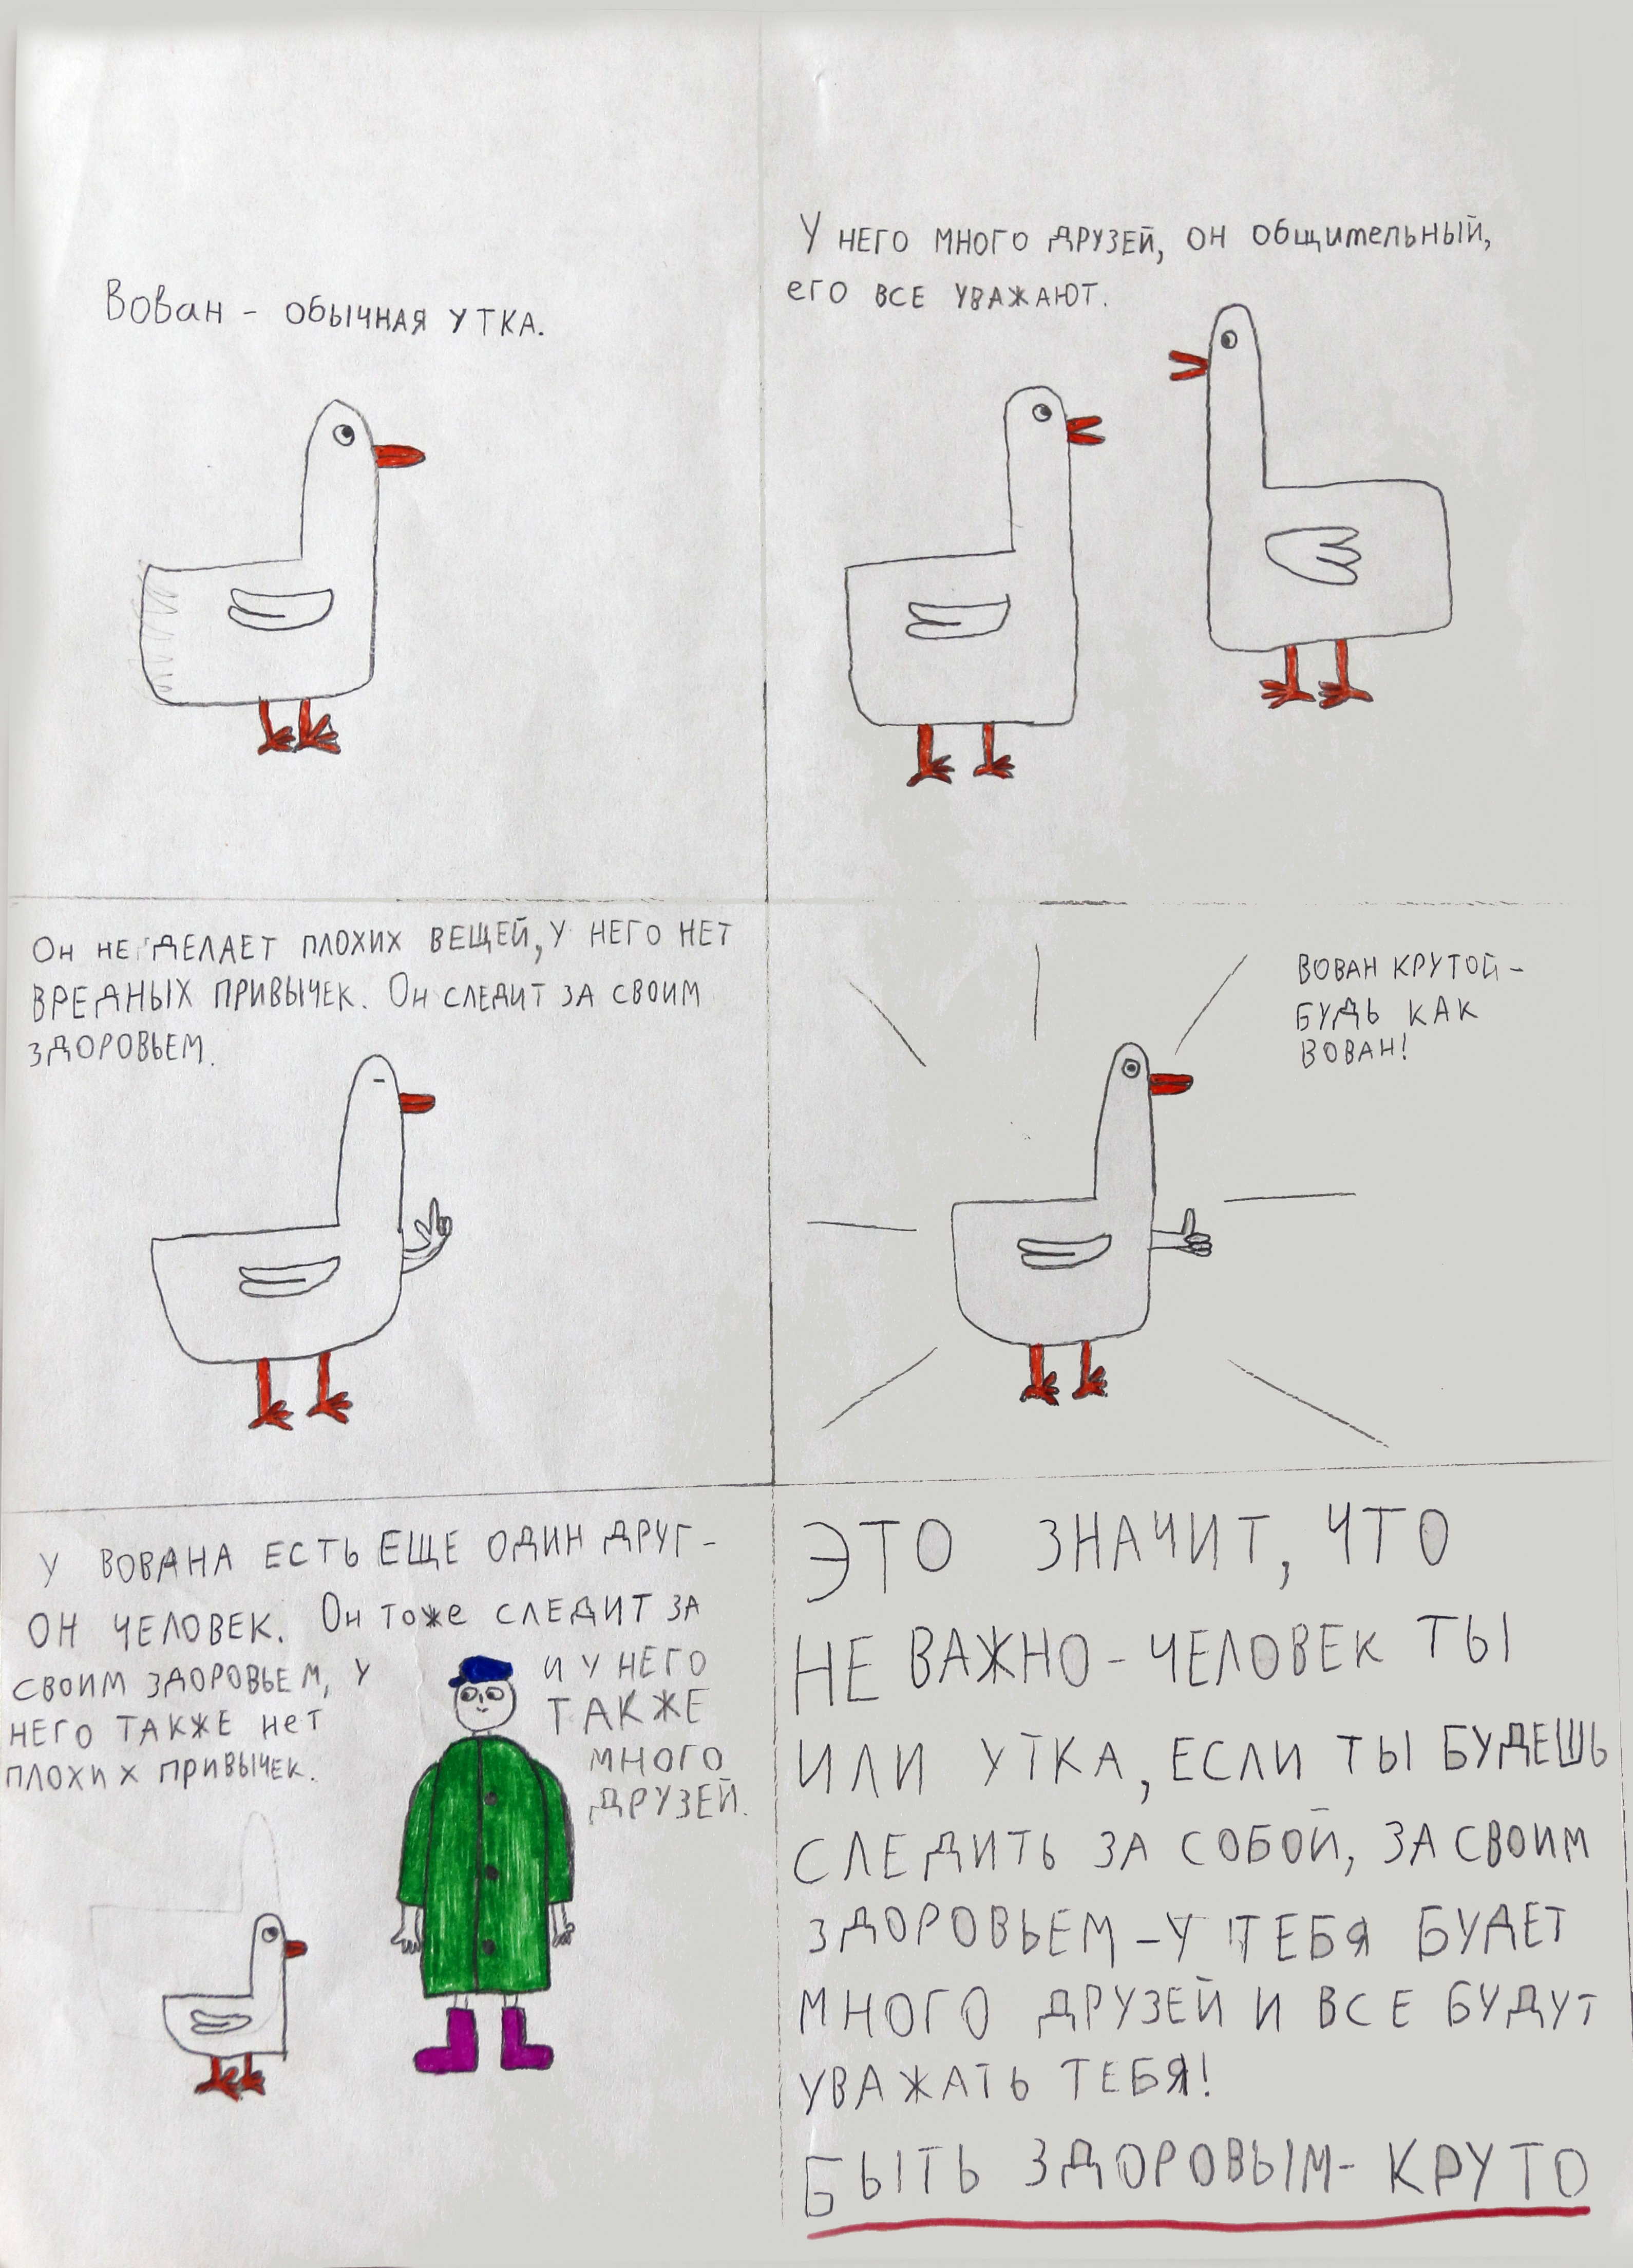 Вован - обычная утка.
У него много друзей, он общительный,
его все уважают.
Он не делает плохих вещей, у него нет
вредных привычек. Он следит за своим
здоровьем.
Вован крутой -
будь как
Вован!
У Вована есть еще один друг -
он человек. Он тоже следит за
своим здоровьем, у
него также нет
плохих привычек.
и у него
также
много
друзей.
Это значит, что
не важно - человек ты
или утка, если ты будешь
следить за собой, за своим
здоровьем - у тебя будет
много друзей и все будут
уважать тебя!
Быть здоровым - круто